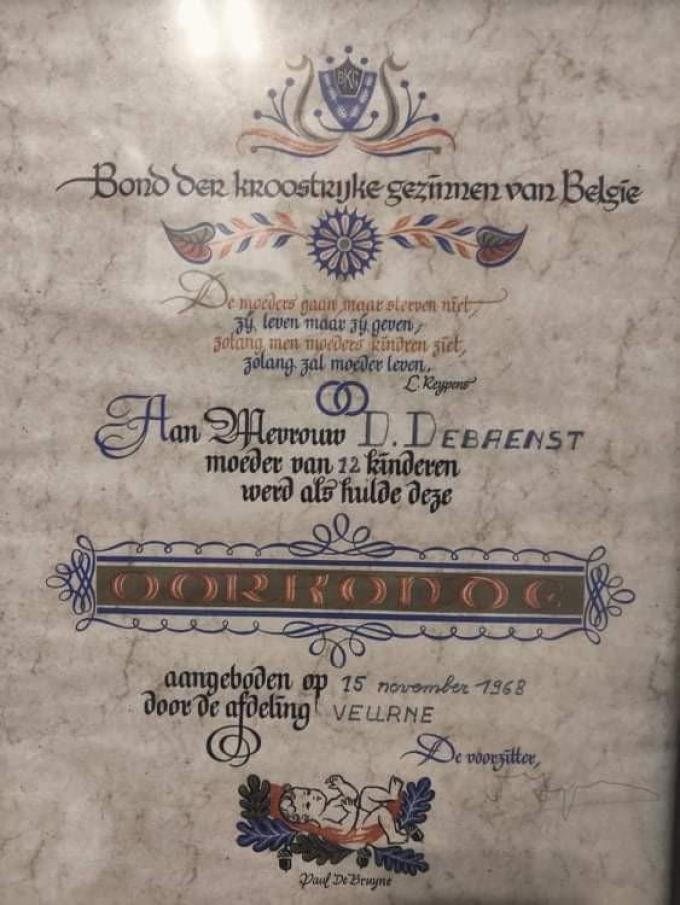 BKG
Bond der kroostrijke gezinnen van Belgie
De moeders gaan maar sterven niet,
zij leven maar zij geven,
zolang men moeders kindren ziet,
zolang zal moeder leven.
L. Reypens
Aan Mevrouw D. DEBAENST
moeder van 12 kinderen
werd als hulde deze
OORKONDE
aangeboden op 15 november 1968
door de afdeling VEURNE
De voorzitter,
Paul De Bruyne